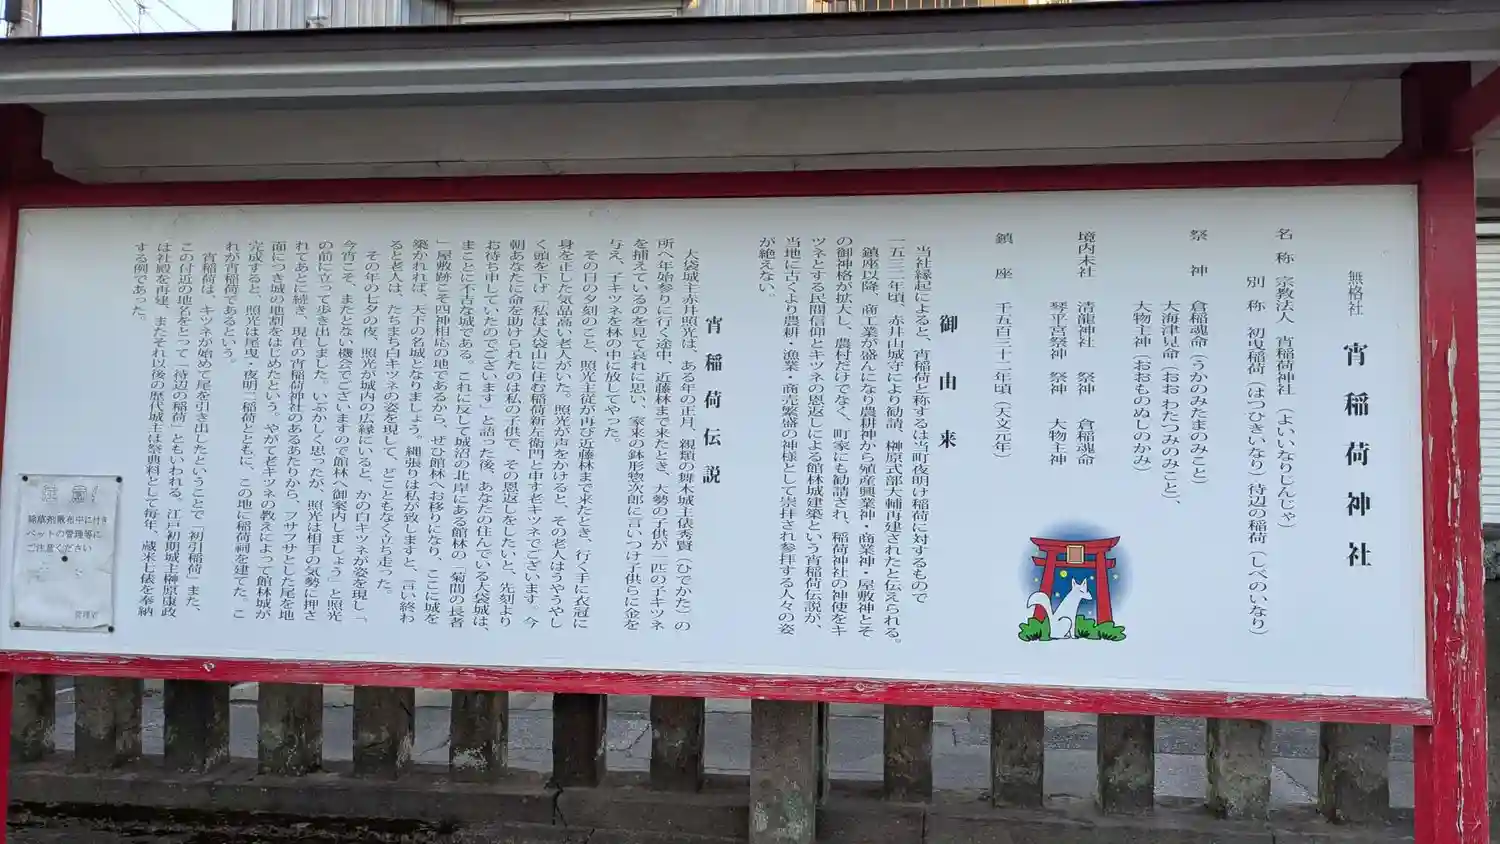 無格社
宵稲荷神社
名称 宗教法人 宵稲荷神社 (よいいなりじんじゃ)
別称 初曳稲荷(はつひきいなり)待辺の稲荷(しべのいなり)
祭神 倉稲魂命(うかのみたまのみこと)
大海津見命(おおわたつみのみこと)、
大物主神(おおものぬしのかみ)
境内末社 清瀧神社 祭神 倉稲魂命
琴平宮祭神 祭神 大物主神
鎮座 千五百三十二年頃(天文元年)
御由来
当社縁起によると、宵稲荷と称するは当町夜明け稲荷に対するもので
一五三二年頃、赤井山城守により勧請、榊原式部大輔再建されたと伝えられる。
鎮座以降、商工業が盛んになり農耕神から殖産興業神・商業神・屋敷神とそ
の御神格が拡大し、農村だけでなく、町家にも勧請され、稲荷神社の神使をキ
ツネとする民間信仰とキツネの恩返しによる館林城建築という宵稲荷伝説が、
当地に古くより農耕・漁業・商売繁盛の神様として崇拝され参拝する人々の姿
が絶えない。
宵稲荷伝説
大袋城主赤井照光は、ある年の正月、親類の舞木城主俵秀賢(ひでかた)の
所へ年始参りに行く途中、近藤林まで来たとき、大勢の子供が一匹の子キツネ
を捕えているのを見て哀れに思い、家来の鉢形惣次郎に言いつけ子供らに金を
与え、子キツネを林の中に放してやった。
その日の夕刻のこと、照光主従が再び近藤林まで来たとき、行く手に衣冠に
身を正した気品高い老人がいた。照光が声をかけると、その老人はうやうやし
く頭を下げ「私は大袋山に住む稲荷新左衛門と申す老キツネでございます。今
朝あなたに命を助けられたのは私の子供で、その恩返しをしたいと、先刻より
お待ち申していたのでございます」と語った後、あなたの住んでいる大袋城は、
まことに不吉な城である。これに反して城沼の北岸にある館林の「菊間の長者
」屋敷跡こそ四神相応の地であるから、ぜひ館林へお移りになり、ここに城を
築かれれば、天下の名城となりましょう。縄張りは私が致しますと、言い終わ
ると老人は、たちまち白キツネの姿を現して、どこともなく立ち走った。
その年の七夕の夜、照光が城内の広縁にいると、かの白キツネが姿を現し「
今宵こそ、またとない機会でございますので館林へ御案内しましょう」と照光
の前に立って歩き出しました。いぶかしく思ったが、照光は相手の気勢に押さ
れてあとに続き、現在の宵稲荷神社のあるあたりから、フサフサとした尾を地
面につき城の地割をはじめたという。やがて老キツネの教えによって館林城が
完成すると、照光は尾曳、夜明二稲荷とともに、この地に稲荷祠を建てた。こ
れが宵稲荷であるという。
宵稲荷は、キツネが始めて尾を引き出したということで「初引稲荷」また、
この付近の地名をとって「待辺の稲荷」ともいわれる。江戸初期城主榊原康政
は社殿を再建、またそれ以後の歴代城主は祭典料として毎年、蔵米七俵を奉納
する例であった。
注意!
除草剤散布中に付き
ペットの管理等に
ご注意ください
管理者